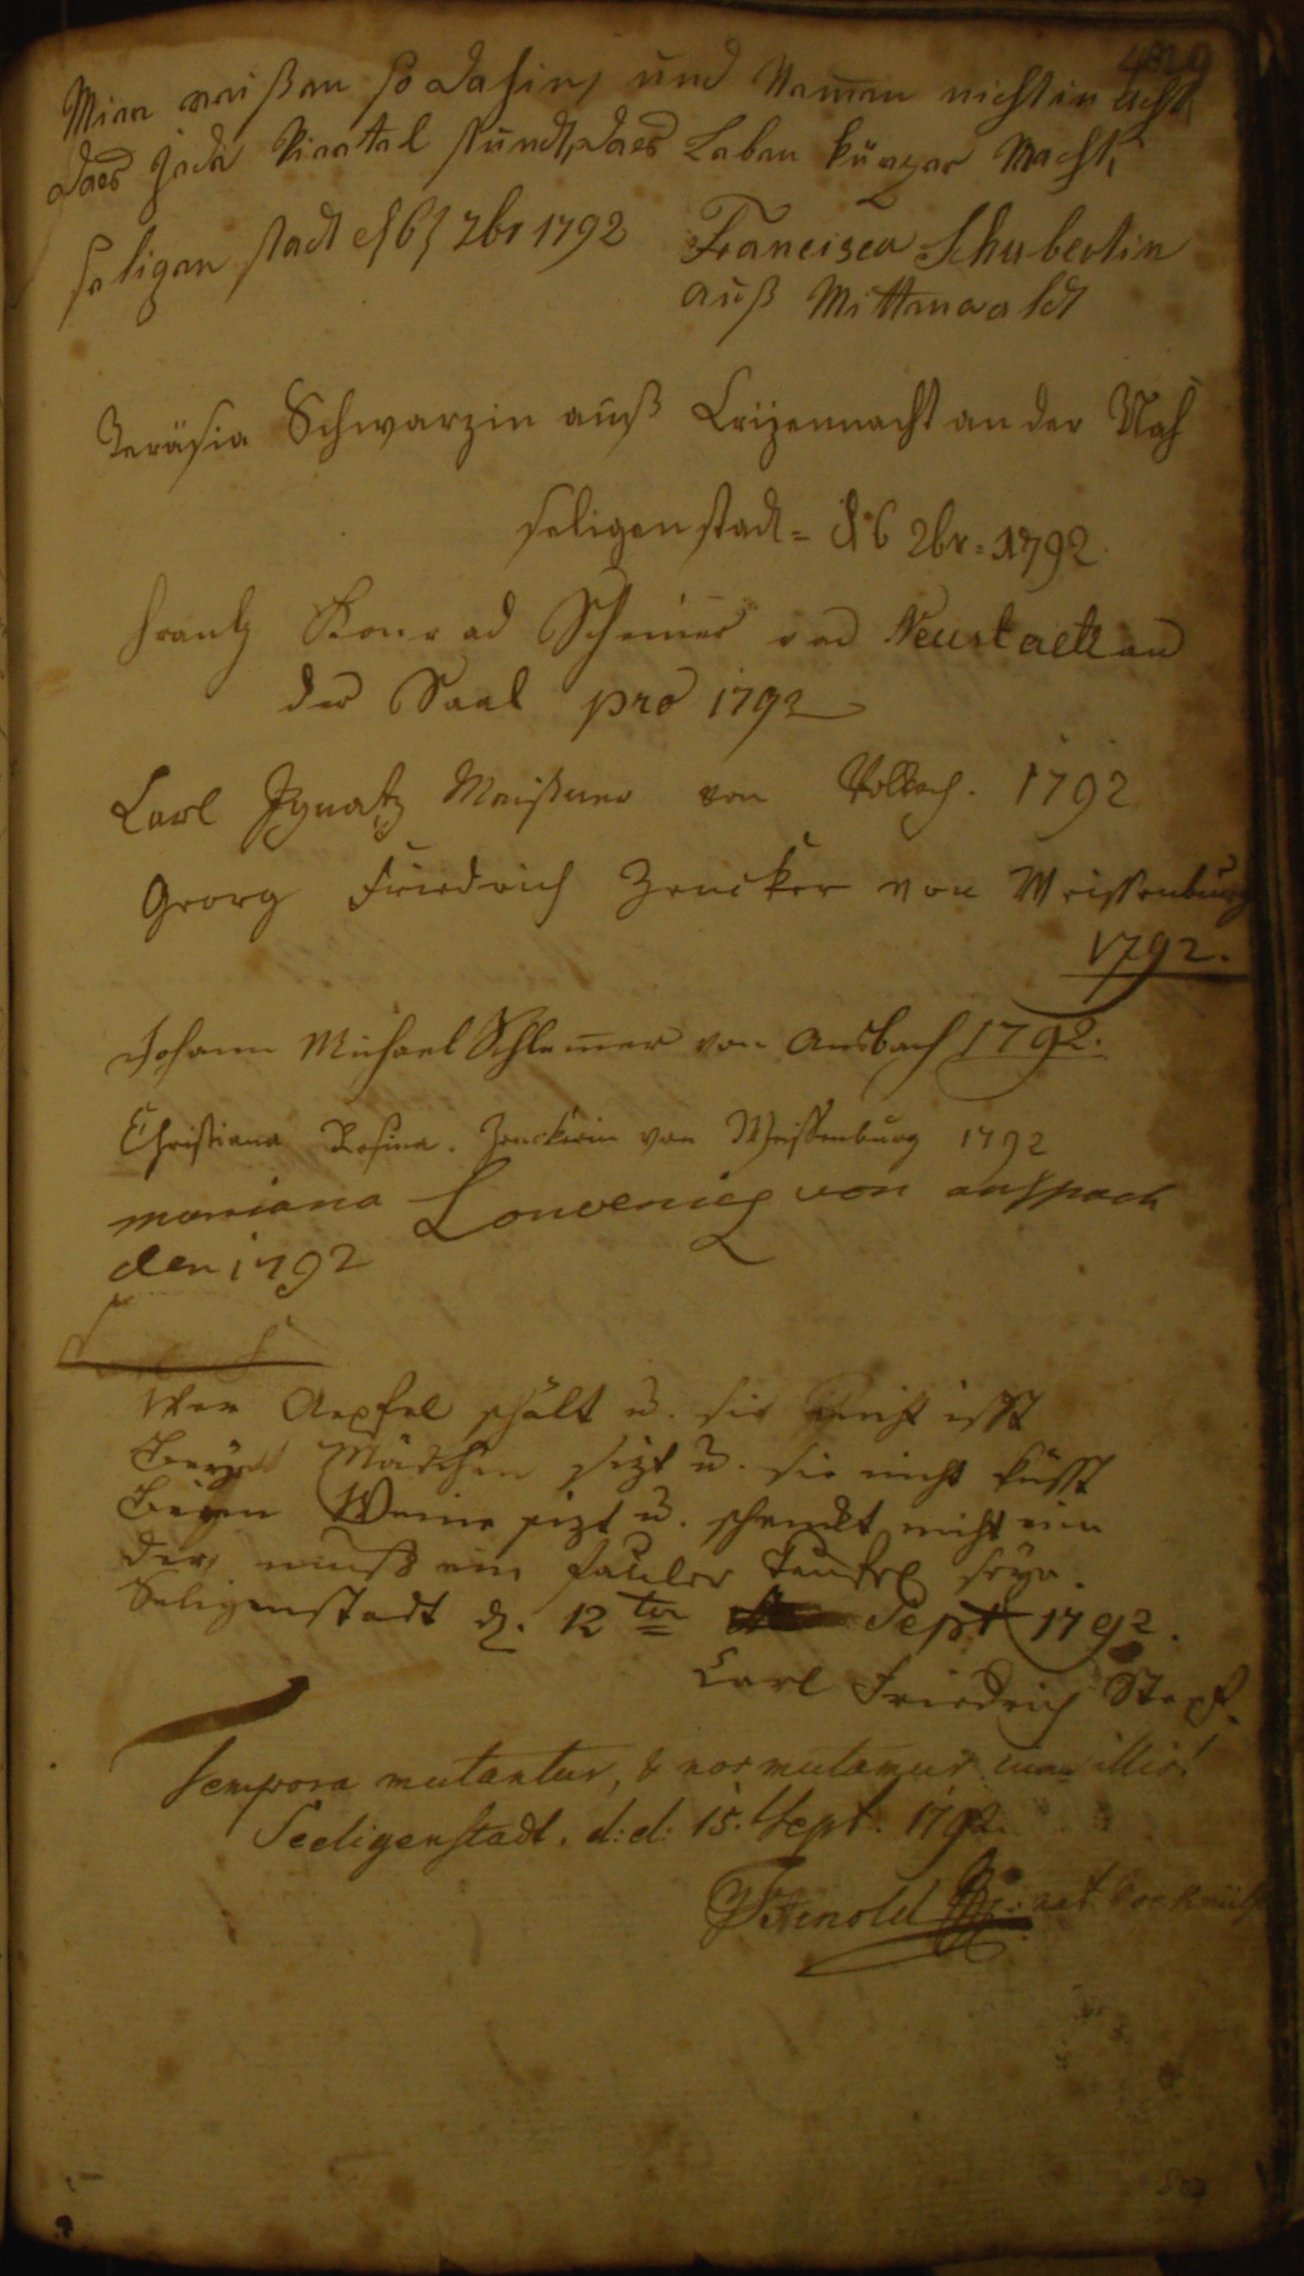 Mier reißen so dahin, und Nemen nicht in acht,
daß jede Viertel stundt, daß Leben kürzer Macht,
seligen stadt d 6 7br 1792 Francisca Schubertin
auß Mittenwaldt
Teräsia Schwarzin auß Crüzennacht an der Nah
seligenstadt = d 6 7br = 1792.
Frantz Konrad Scheiner von Neustadt an
der Saal pro 1792
Carl Ignatz Meißner von Volkach. 1792
Georg Friedrich Zencker von Weissenburg
1792.
Johann Michael Schlem̄er von Ansbach 1792.
Christiana Rosina. Zenckerin von Weissenburg 1792
mariana von anspach
den 1792
Wer Aepfel schält u. sie nicht isst
Beym Mädchen sizt u. sie nicht küsst
Beym Weine sizt u. schenckt nicht ein
der muß ein fauler Teufel seyn.
Seligenstadt d. 12ten Sept 1792.
Carl Friedrich Stepf.
Tempora mutantur, & nos mutamur cum illis!
Seeligenstadt. d: d: 15. Sept. 1792.
Arnold